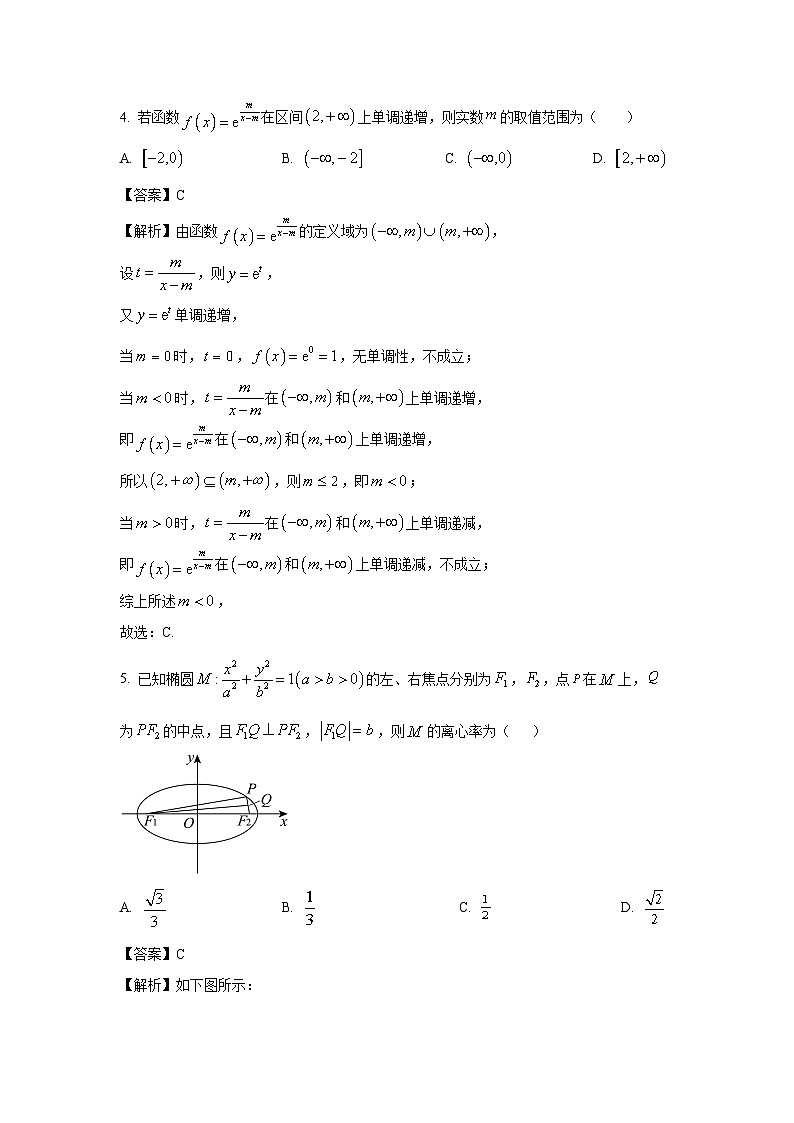 4. 若函数 f(x)=e^{\frac{m}{x-m}} 在区间(2,+∞)上单调递增,则实数m的取值范围为(  )
A. [−2,0)  B. (−∞,−2]  C. (−∞,0)  D. [2,+∞)
【答案】C
【解析】由函数 f(x)=e^{\frac{m}{x-m}} 的定义域为(−∞,m)∪(m,+∞),
设t=\frac{m}{x-m},则y=e^t,
又y=e^t单调递增,
当m=0时,t=0,f(x)=e^0=1,无单调性,不成立;
当m<0时,t=\frac{m}{x-m}在(−∞,m)和(m,+∞)上单调递增,
即 f(x)=e^{\frac{m}{x-m}} 在(−∞,m)和(m,+∞)上单调递增,
所以(2,+∞)⊆(m,+∞),则m≤2,即m<0;
当m>0时,t=\frac{m}{x-m}在(−∞,m)和(m,+∞)上单调递减,
即 f(x)=e^{\frac{m}{x-m}} 在(−∞,m)和(m,+∞)上单调递减,不成立;
综上所述m<0,
故选:C.
5. 已知椭圆M:\frac{x^2}{a^2}+\frac{y^2}{b^2}=1(a>b>0)的左、右焦点分别为F₁,F₂,点P在M上,Q
为PF₂的中点,且F₁Q⊥PF₂,|F₁Q|=b,则M的离心率为(  )
y
P
Q
F₁ O F₂ x
A. \frac{\sqrt{3}}{3}  B. \frac{1}{3}  C. \frac{1}{2}  D. \frac{\sqrt{2}}{2}
【答案】C
【解析】如下图所示: